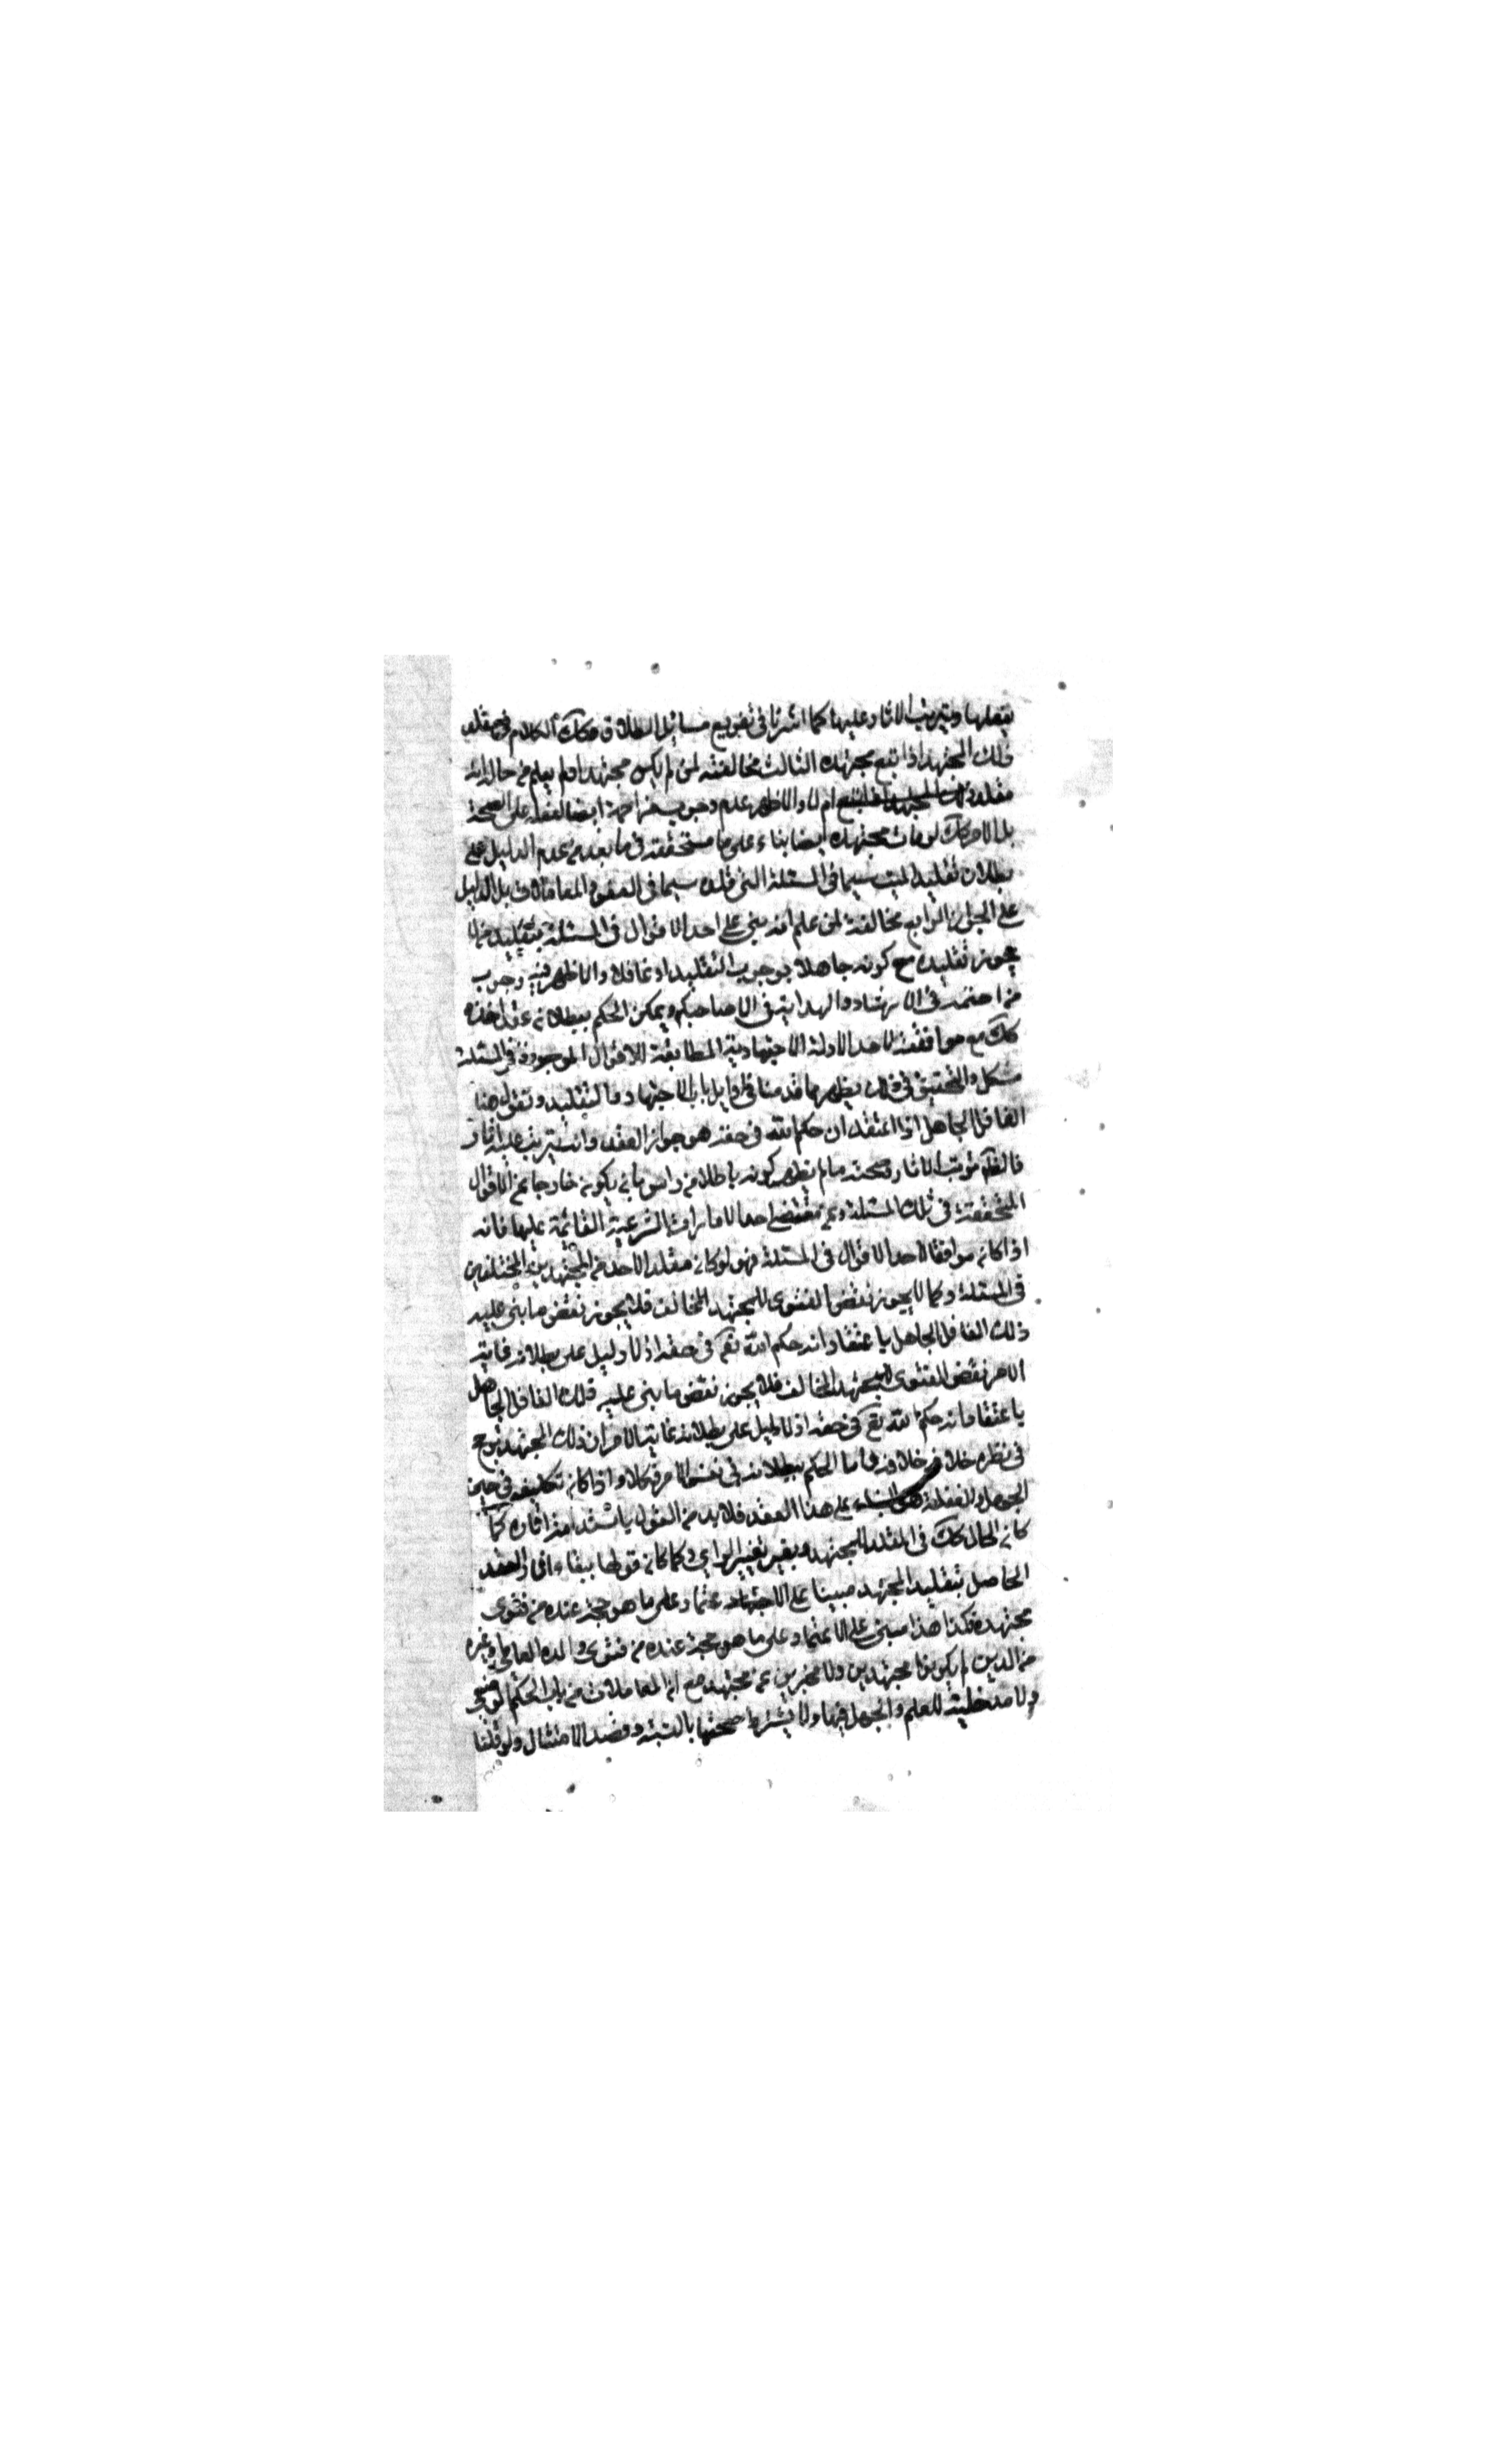 بفعلها ويترتب الاثار عليها كما اشرنا في تفريع مسائل الطلاق وكك الكلام في مقلد
ذلك المجتهد اذا تبع مجتهده الثالث مخالفته لمن لم يكن مجتهدا ولم يعلم من حاله انه
مقلد ام لا والاظهر عدم وجوب مزاحمة ايضا لفعله على الصحة
بل الامر كك لو مات مجتهده ايضا بناء على ما ستحققه في ما بعد من عدم الدليل على
بطلان تقليد الميت سيما في المسئلة التي قلده سيما في العقود والمعاملات بل الدليل
على الجواز الرابع مخالفته لمن علم انه بنى على احد الاقوال في المسئلة بتقليد من لا
يجوز تقليده مع كونه جاهلا بوجوب التقليد او غافلا والاظهر فيه وجوب
في الارشاد والهداية في الاصاحبكم ويمكن الحكم ببطلانه عقد هذه
كك مع موافقته لاحد الادلة الاجتهادية المطابقة للاقوال الموجودة في المسئلة
مشكل والتحقيق في ذلك يظهر مما قدمنا في اوايل باب الاجتهاد والتقليد ونقول هنا
الغافل الجاهل اذا اعتقد ان حكم الله في حقه هو جواز العقد وانه يترتب عليه اثار
فالعقد مؤثر الاثار وصحته ما لم يظهر كونه باطلا من راس بان يكون خارجا عن الاقوال
المتحققة في تلك المسئلة وعن مقتضى احد الامارات الشرعية القائمة عليها فانه
اذا كان موافقا لاحد الاقوال في المسئلة فهو لو كان مقلدا لاحد من المجتهدين المختلفين
في المسئلة وكما لا يجوز نقض الفتوى للمجتهد المخالف فلا يجوز نقض ما بنى عليه
ذلك الغافل الجاهل باعتقاد انه حكم الله تعم في حقه اذ لا دليل على بطلانه غاية
الامر نقض الفتوى للمجتهد المخالف فلا يجوز نقض ما بنى عليه ذلك الغافل الجاهل
باعتقاد انه حكم الله تع في حقه اذ لا دليل على بطلانه غاية الامر ان ذلك المجتهد ترجح
في نظره خلافه خلافه واما الحكم ببطلانه في نفس الامر فكلا واذا كان تكليفه في حين
الجهل والغفلة هو البناء على هذا العقد فلا بد من القول باستدامة اثاره كما
كان الحال كك في المقلد للمجتهد وبغير تغيير الراي وكما كان قولها ببقاء اثار العقد
الحاصل بتقليد المجتهد مبينا على الاجتهاد عتماد على ما هو حجة عنده من فتوى
مجتهده فكذا هذا مبنى على الاعتماد على ما هو حجة عنده من فتوى والده العامي وغيره
من الذين لم يكونوا مجتهدين ولا مخبرين عن مجتهد مع ان المعاملات من باب الحكم الوضعي
ولا مدخلية للعلم والجهل فيها ولا يشترط صحتها بالنية وقصد الامتثال ولو قلنا